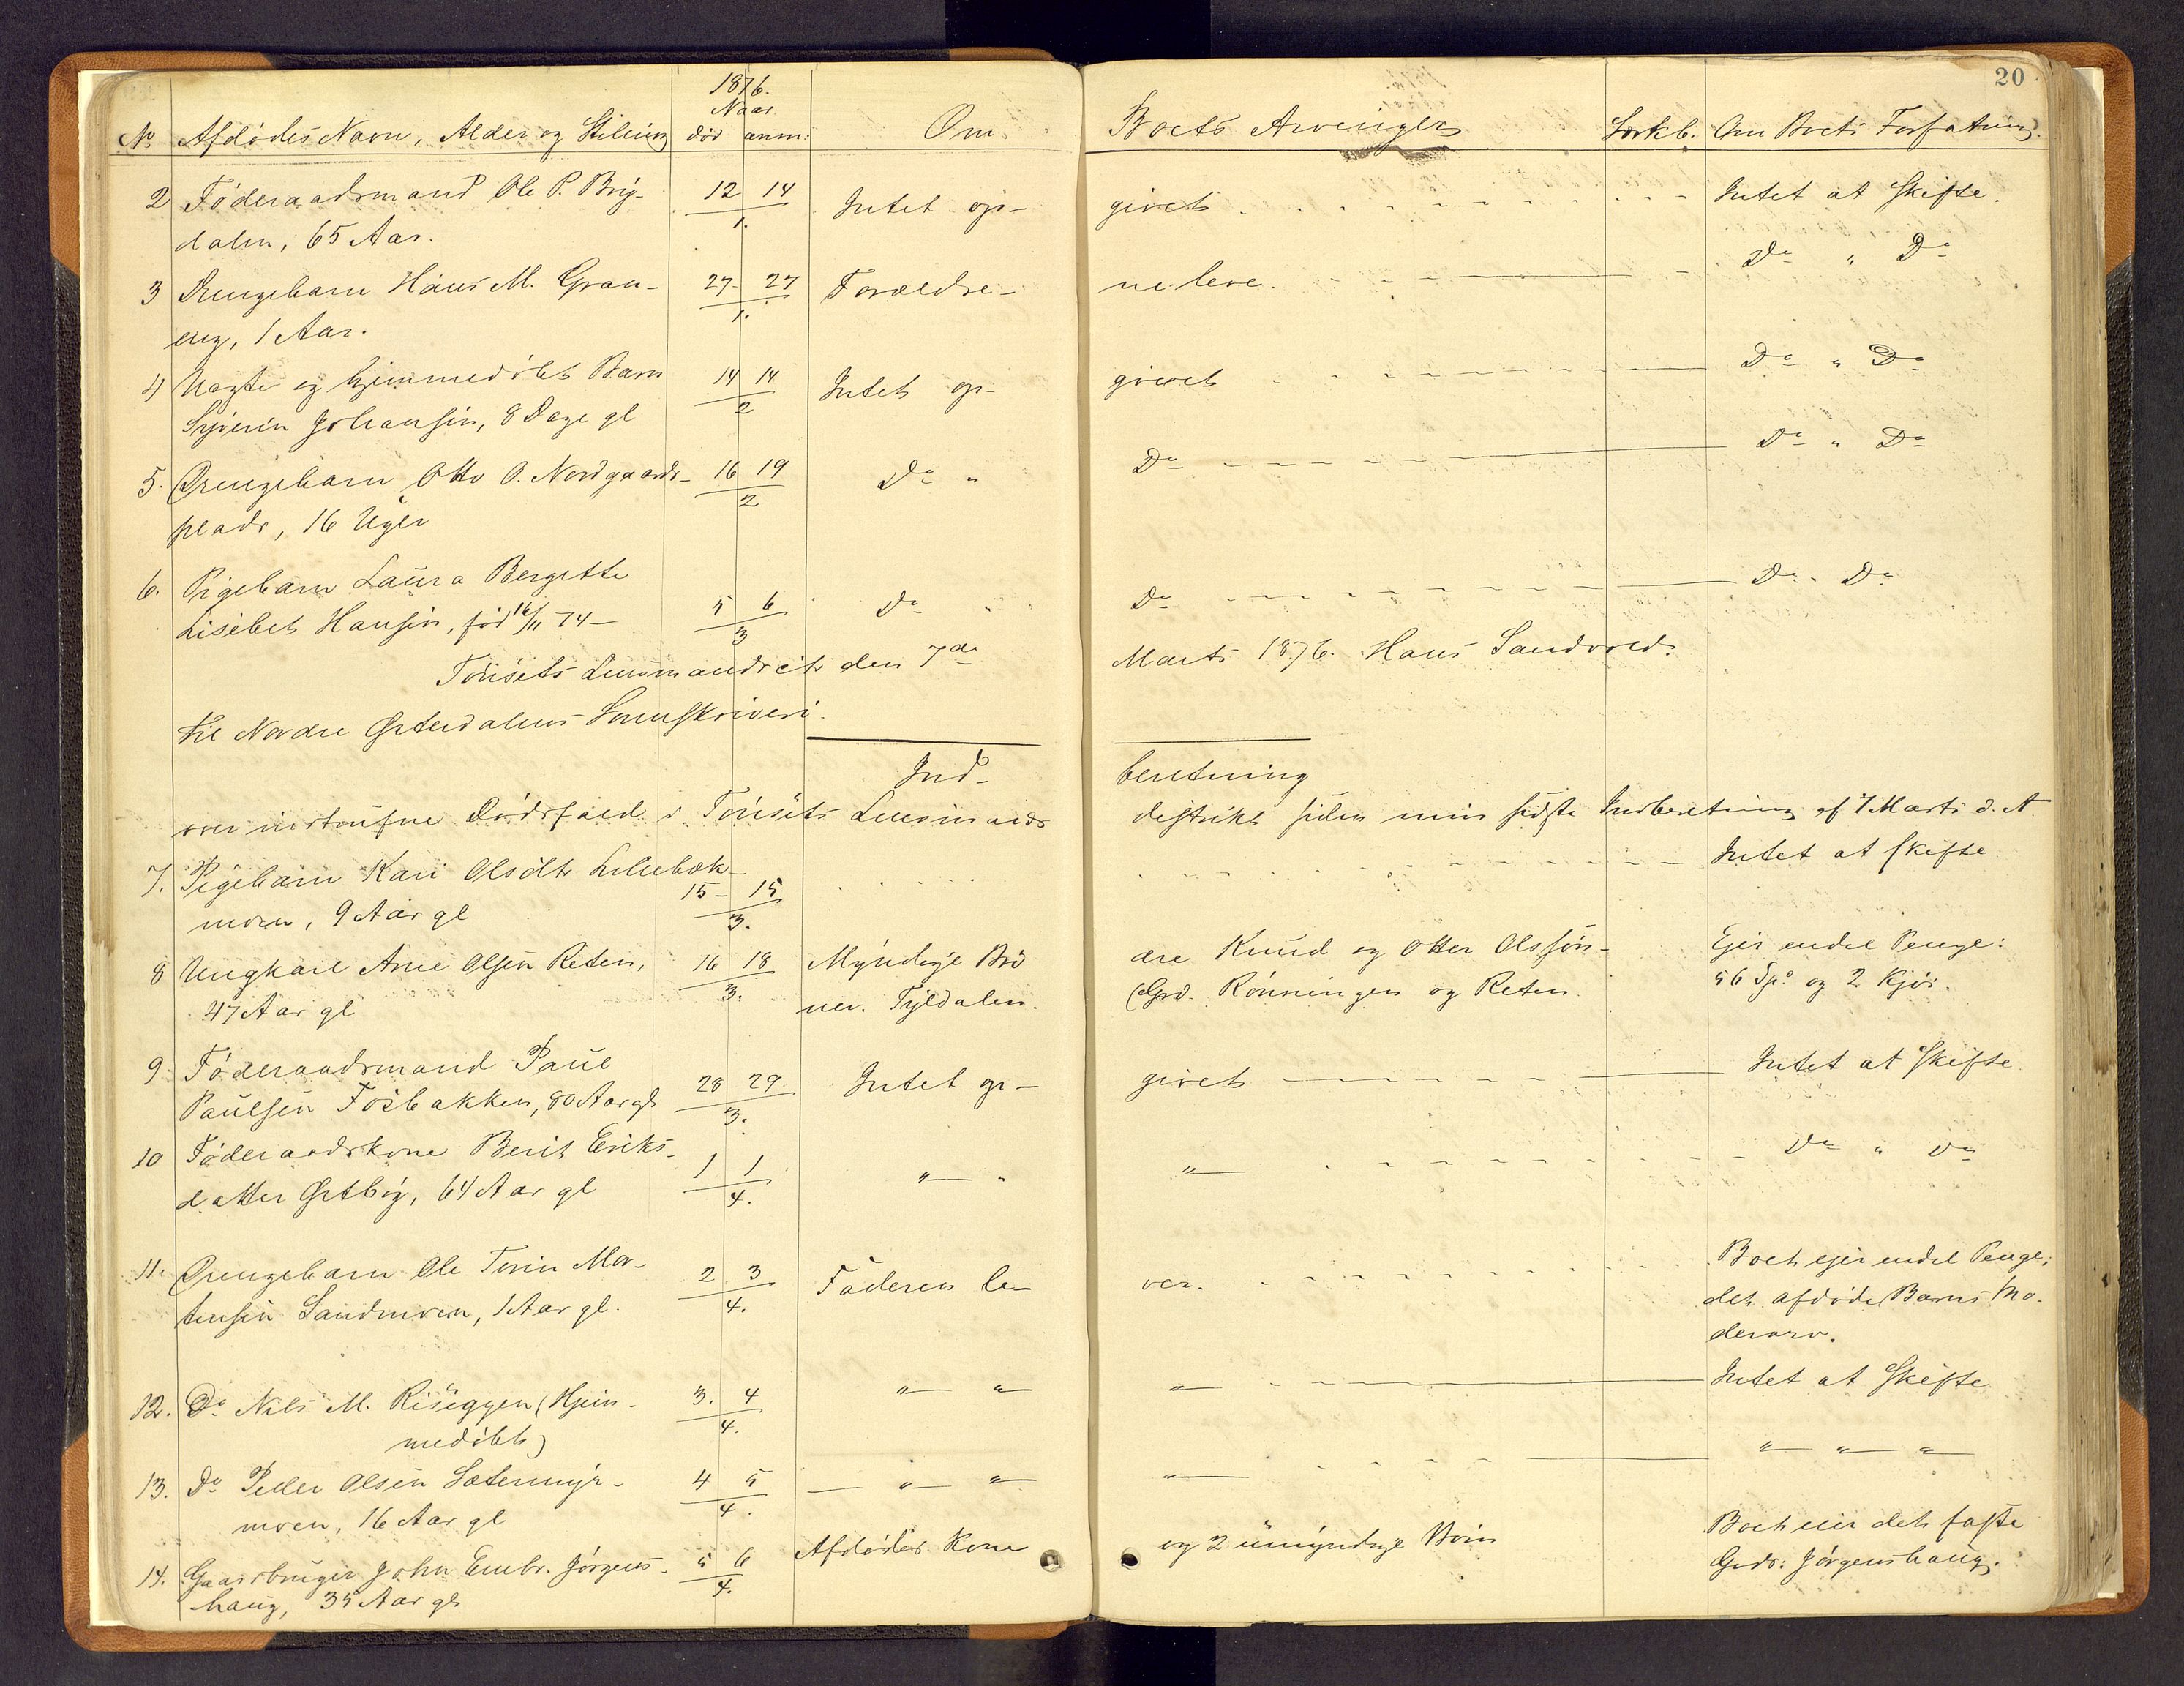 20
1876.
Naar
No Afdødes Navn, Alder og Stilling død anm: Om Boets Arvinger Om Boets Forfatning.
2 Føderaadsmand Ole P. Bry- 12 14 Intet op- givet Intet at Skifte.
dalen, 65 Aar. 1.
3 Drengebarn Hans M. Gran- 27 27 Forældre- ne leve. Do " Do
eng, 1 Aar. 1.
4 og hjemmedøbt Barn 14 14 Intet op- givet Do " Do
Syverin Johansen, 8 Dage gl 2
5. Drengebarn Otto O. Nordgaards- 16 19 Do " Do Do " Do
plads, 16 Uger 2
6. Pigebarn Laura Bergitte
Lisebet Hansen, fød 16/11 74 — 5 6 Do " Do Do " Do
3
Tönsets Lensmandsct den 7de Marts 1876. Hans Sandvold.
til Nordre Østerdalens Sorenskriveri.
Ind- beretning
over indtrufne Dødsfald i Tönsets Lensmands distrikt siden min sidste Indberetning af 7 Marts d. A.
7. Pigebarn Kari Olsdtr Lillebæk- Intet at skifte
moen, 9 Aar gl 15 — 15
3.
8 Ungkarl Arne Olsen Reten, 16 18 Myndige Brö dre Knud og Otter Olssön- Ejer endel Penge:
47 Aar gl 3. ner. Tyldalen. (Grd. Rönningen og Reten. 56 Spd og 2 Kjör.
9. Föderaadsmand Paul
Paulsen Fosbakken, 80 Aar gl 28 29 Intet op- givet Intet at Skifte
3.
10 Föderaadskone Berit Eriks- 1 1 " " " Do " Do
datter Østbÿ, 64 Aar gl 4.
11. Drengebarn Ole Terin Mor- 2 3 Faderen le- ver. Boet ejer endel Penge:
tensen Sandmoen, 1 Aar gl. 4. det afdøde Barns Mo-
derarv.
12. Do Nils M. Riseggen (Hjem- 3. 4 " " " Intet at Skifte
medøbt) 4.
13. Do Peder Olsen Sætermyr- 4 5 " " " " " "
moen, 16 Aar gl 4.
14. Gaardbruger John Embr. Jörgens- 5 6 Afdødes Kone og 2 umyndige Börn Boet eier det faste
haug, 35 Aar gl 4. Gods: Jörgenshaug.